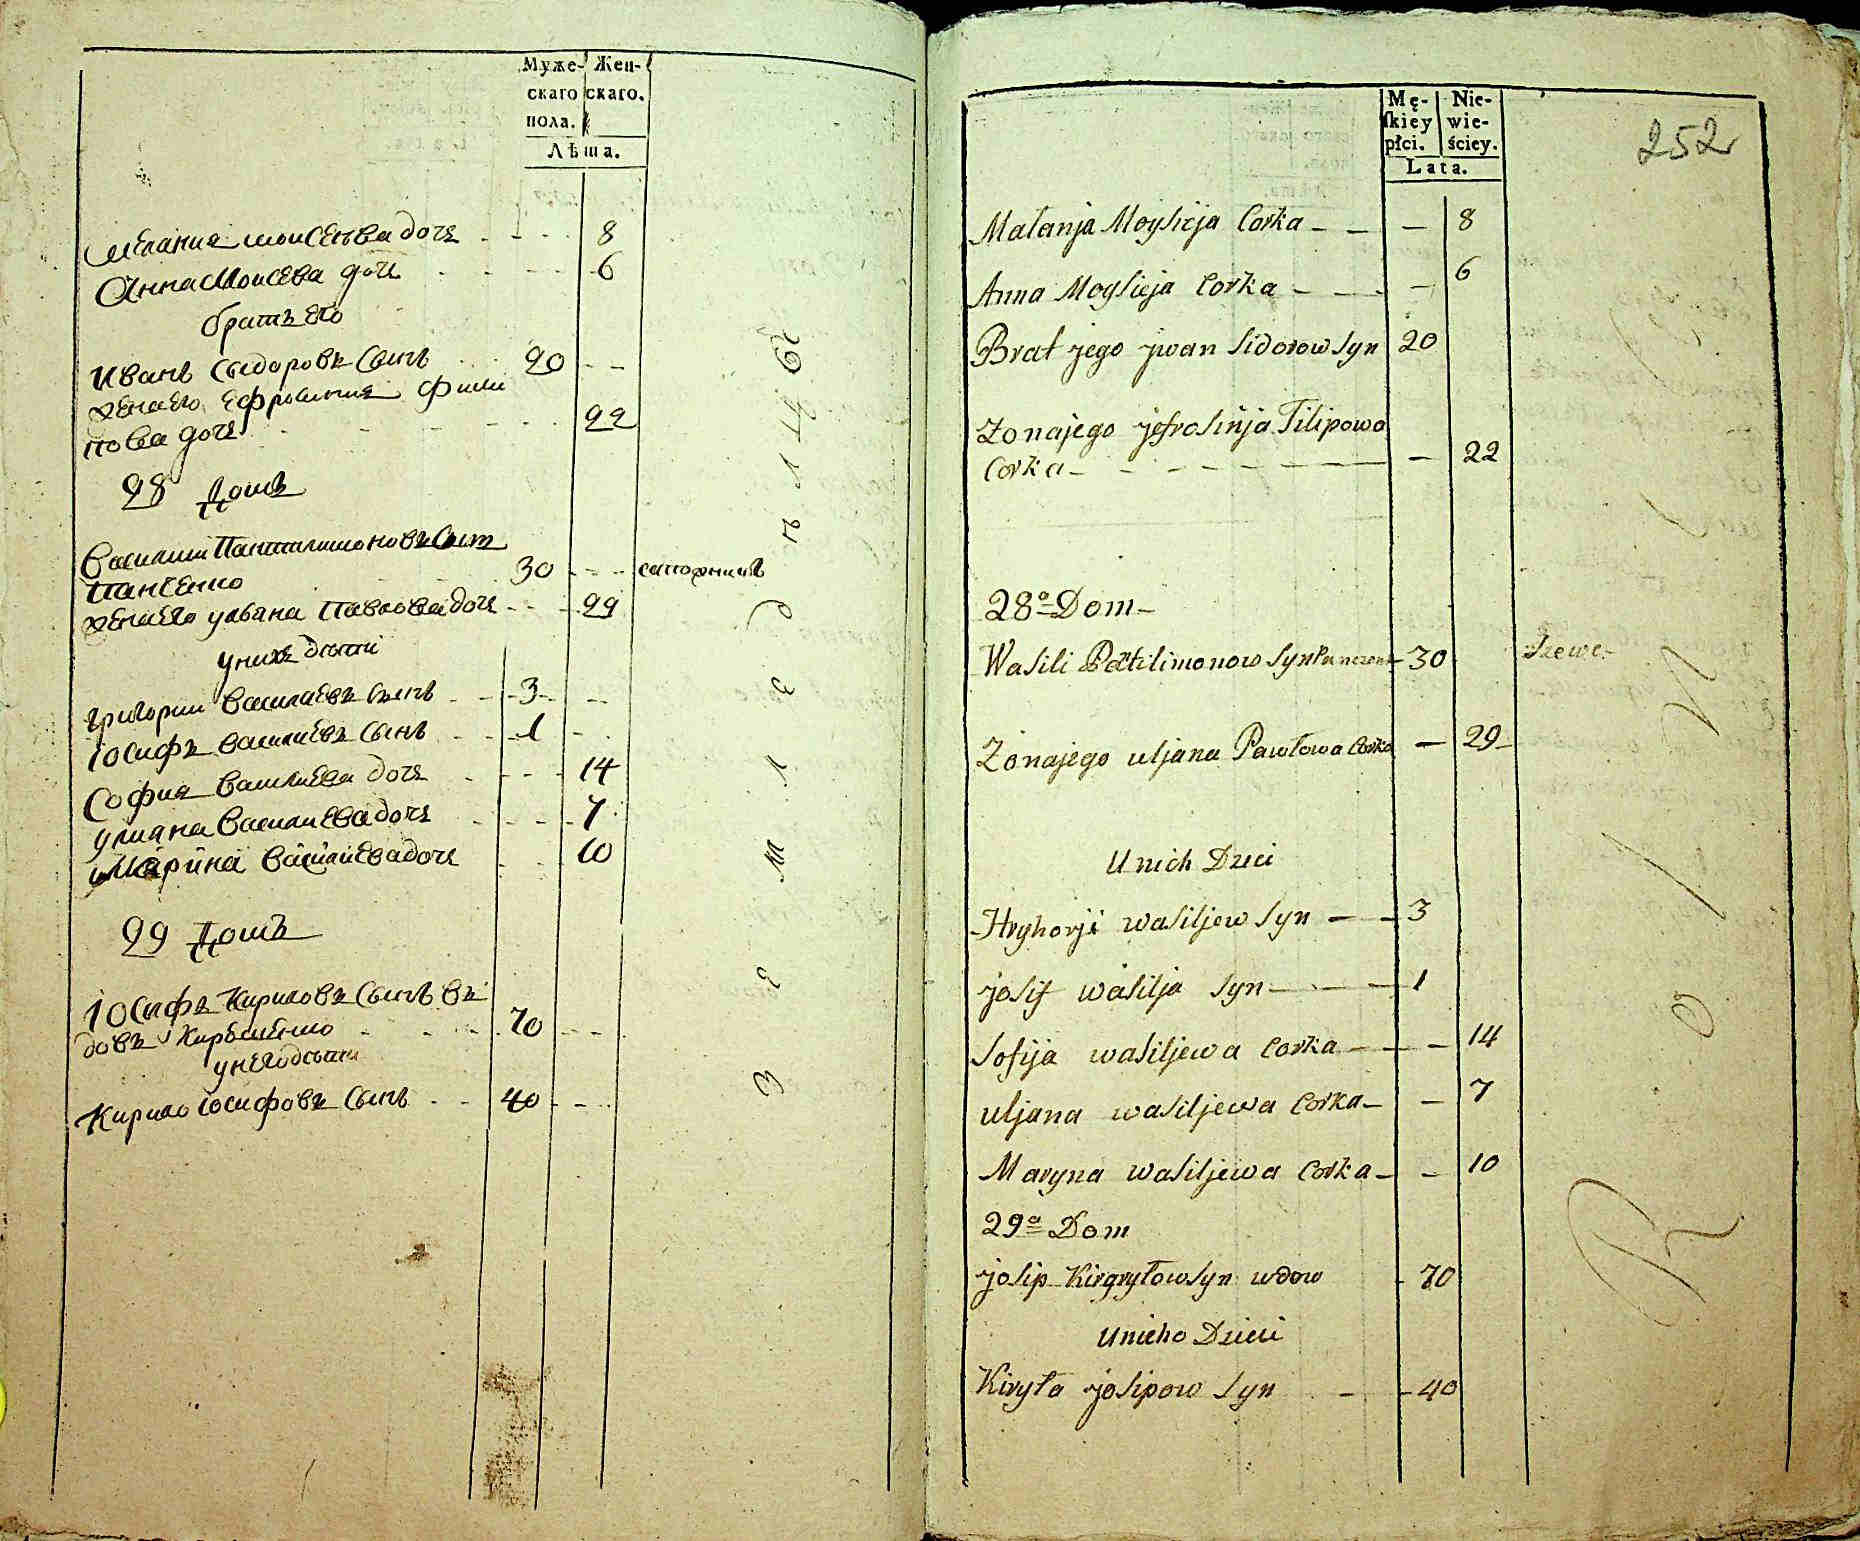 Муже-
скаго
пола.
Жен-
скаго.
Лѣта.
Мелания Моисеева дочь - - - 8
Анна Моисева дочь - - - 6
братъ его
Иванъ Сыдоровъ сынъ 20 - -
жена его Ефросиния Фили
пова дочь - - - 22
28 Домъ
Василий Пантилимоновъ сын
Панченко 30 - - - сапожникъ
жена его Ульана Павлова дочь - - - 29
у них дѣти
Григории Василиевъ сынъ - - 3 - -
Іосифъ Василиевъ сынъ - - 1 - -
София Василиева дочь - - - 14
Улиана Василиева дочь - - - 7
Марина Василиева дочь - - 10
29 Домъ
Іосифъ Кириловъ сынъ в
довъ 70 - -
у него дѣти
Кирило Іосифовъ сынъ - - 40 - -
З е м л е д
Mę-
ſkiey
płci.
Nie-
wie-
ściey.
Lata.
252
Małanja Moysieja Corka - - - 8
Anna Moysieja Corka - - - 6
Brat jego jwan Sidorow Syn 20
Zonajego jefrosinja Filipowa
Corka - - - - - - 22
28º Dom -
Wasili Patilimonow Syn 30 Szewc
Zonajego uljana Pawłowa Corka - 29 -
Unich Dzieci
Hryhorji wasiljew Syn - - 3
josif wasilja Syn - - - 1
Sofija wasiljewa Corka - - - 14
uljana wasiljewa Corka - - 7
Maryna wasiljewa Corka - - 10
29ª Dom
josip Kirgryłow Syn wdow - 70
Unieho Dzieci
Kiryła josipow Syn - - 40
R o l n i